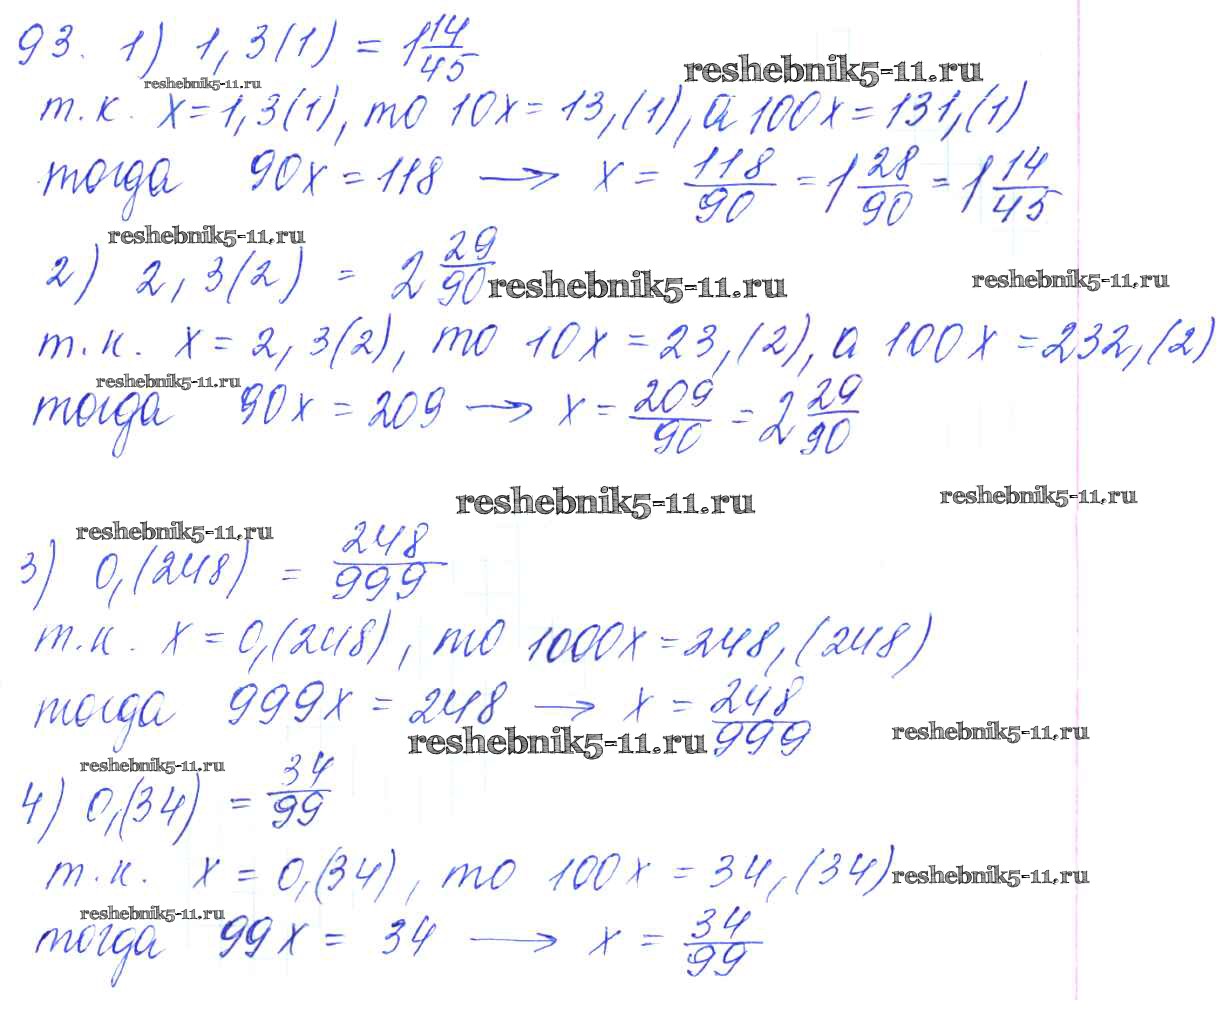 93. 1) 1,3(1) = 1 14/45
reshebnik5-11.ru
reshebnik5-11.ru
т.к. x=1,3(1), то 10x=13,(1), а 100x=131,(1)
тогда 90x=118 → x = 118/90 = 1 28/90 = 1 14/45
reshebnik5-11.ru
2) 2,3(2) = 2 29/90
reshebnik5-11.ru
reshebnik5-11.ru
т.к. x = 2,3(2), то 10x = 23,(2), а 100x = 232,(2)
reshebnik5-11.ru
тогда 90x = 209 → x = 209/90 = 2 29/90
reshebnik5-11.ru
reshebnik5-11.ru
reshebnik5-11.ru
3) 0,(248) = 248/999
т.к. x = 0,(248), то 1000x = 248,(248)
тогда 999x = 248 → x = 248/999
reshebnik5-11.ru
reshebnik5-11.ru
reshebnik5-11.ru
4) 0,(34) = 34/99
т.к. x = 0,(34), то 100x = 34,(34)
reshebnik5-11.ru
reshebnik5-11.ru
тогда 99x = 34 → x = 34/99